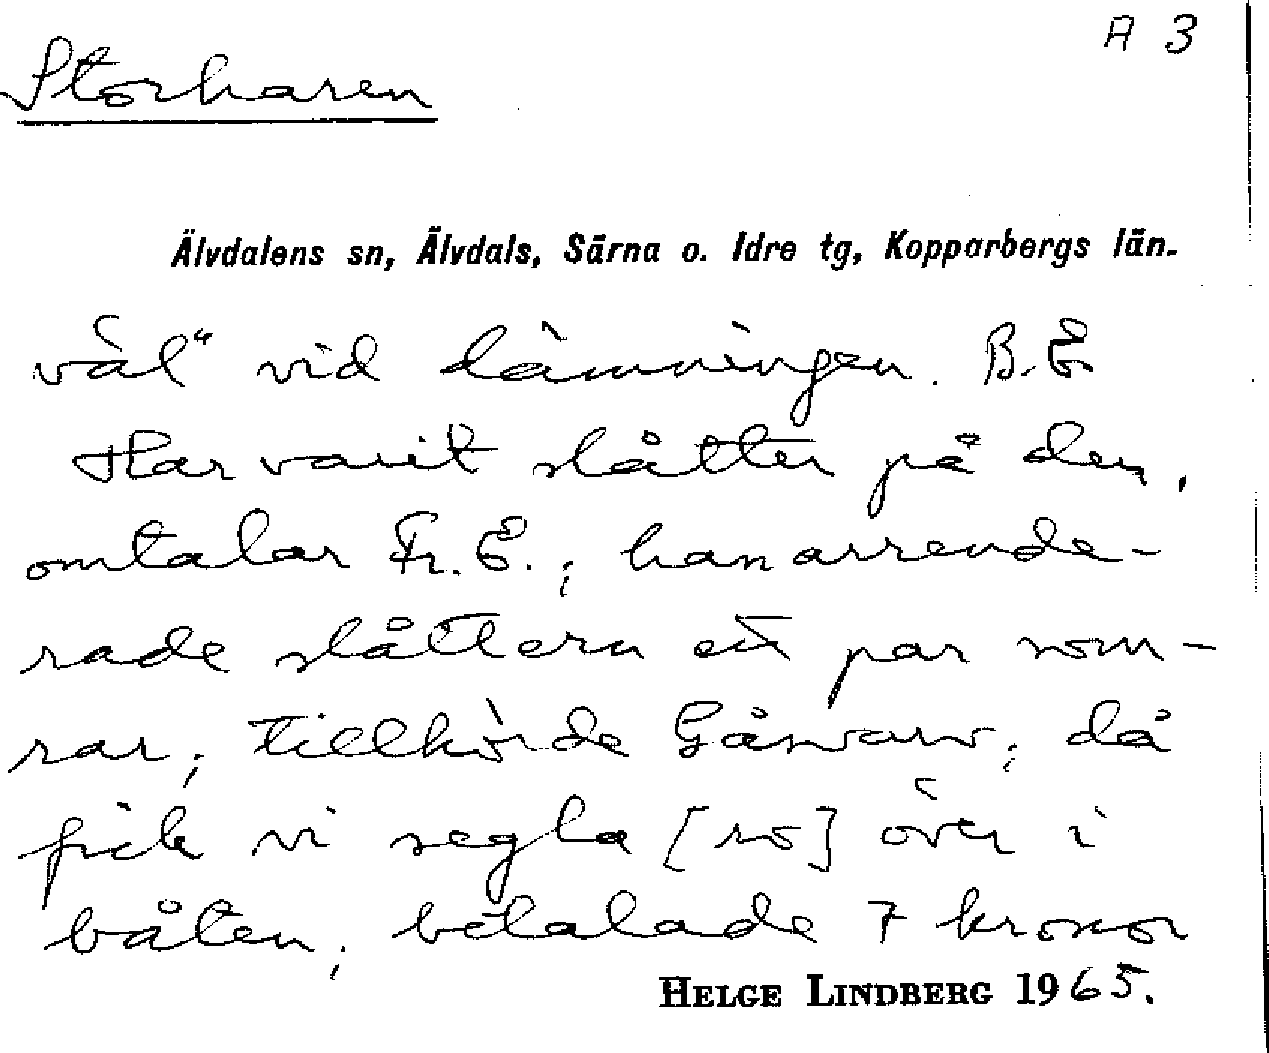 A 3
Storharen
Älvdalens sn, Älvdals, Särna o. Idre tg, Kopparbergs län.
väl" vid dämningen. B.E
Har varit slåtter på den,
omtalar Fr. E.; han arrende-
rade slåttern ett par som-
rar; tillhörde Gåsvarv; då
fick vi segla [ro] över i
båten; betalade 7 kronor
HELGE LINDBERG 1965.